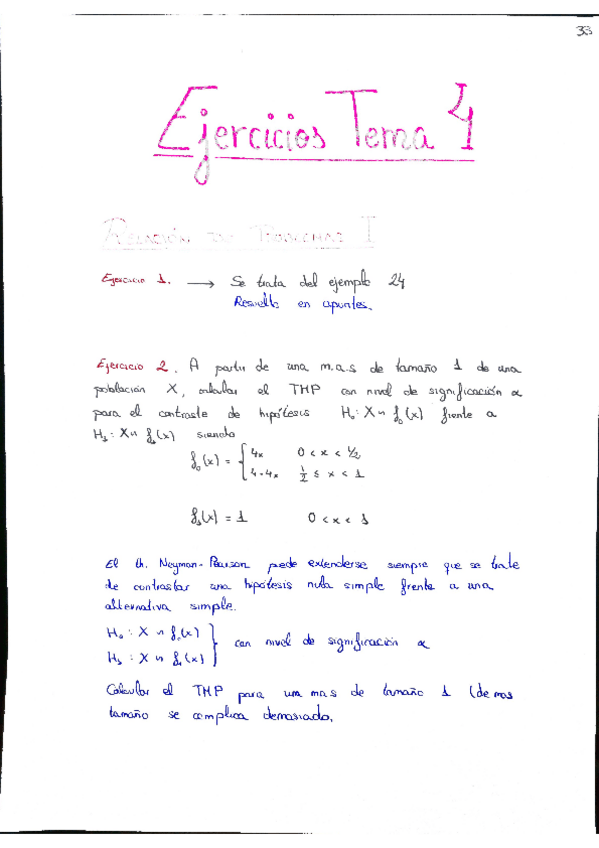 33
Ejercicios Tema 4
RELACIÓN DE PROBLEMAS I
Ejercicio 1. → Se trata del ejemplo 24
Resuelto en apuntes.
Ejercicio 2. A partir de una m.a.s de tamaño 1 de una
población X, calcular el THP con nivel de significación α
para el contraste de hipótesis H₀: X ~ f₀(x) frente a
H₁: X ~ f₁(x) siendo
f₀(x) = { 4x 0 < x < 1/2
4-4x 1/2 ≤ x < 1
f₁(x) = 1 0 < x < 1
El th. Neyman-Pearson puede extenderse siempre que se trate
de contrastar una hipótesis nula simple frente a una
alternativa simple.
H₀: X ~ f₀(x)
H₁: X ~ f₁(x) } con nivel de significación α
Calcular el THP para una mas de tamaño 1 (de más
tamaño se complica demasiado.